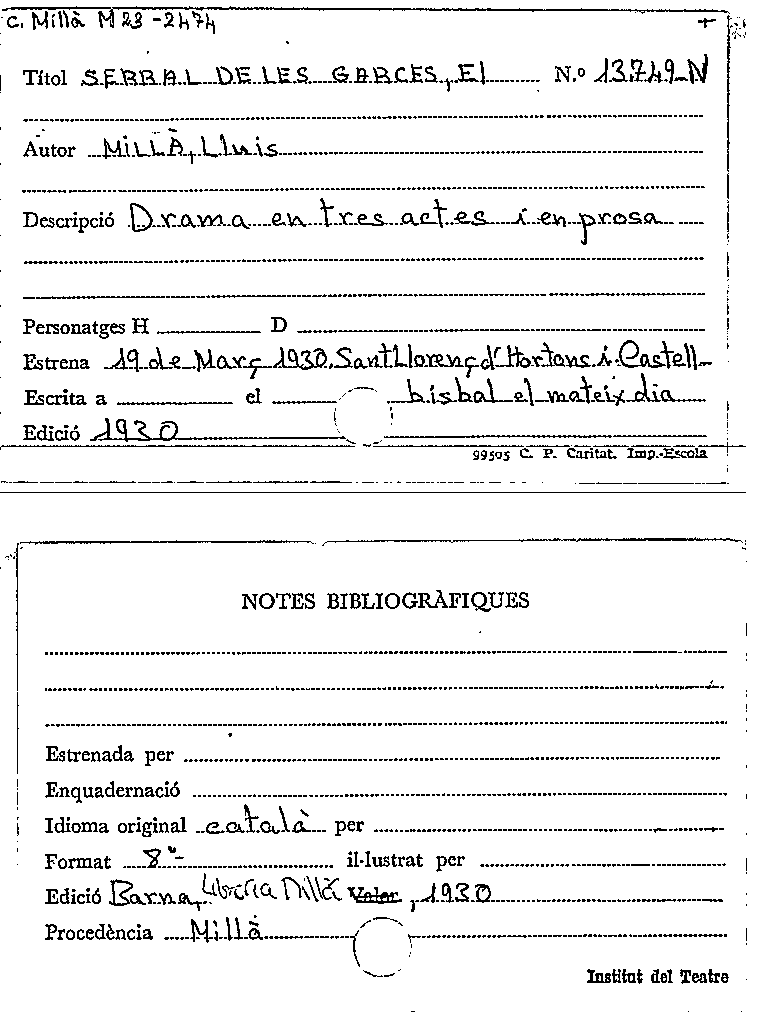 C. Millà M 23 - 2474 +
Títol SERRAL DE LES GARCES, El N.º 13.749-N
Autor MILLÀ, Lluis
Descripció Drama en tres actes i en prosa
Personatges H D
Estrena 19 de Març 1930. Sant Llorenç d'Hortons i Castell-
Escrita a el bisbal el mateix dia
Edició 1930
99505 C. P. Caritat. Imp.-Escola
NOTES BIBLIOGRÀFIQUES
Estrenada per
Enquadernació
Idioma original català per
Format 8º- il·lustrat per
Edició Barna, Llibreria Millà, 1930
Procedència Millà
Institut del Teatre